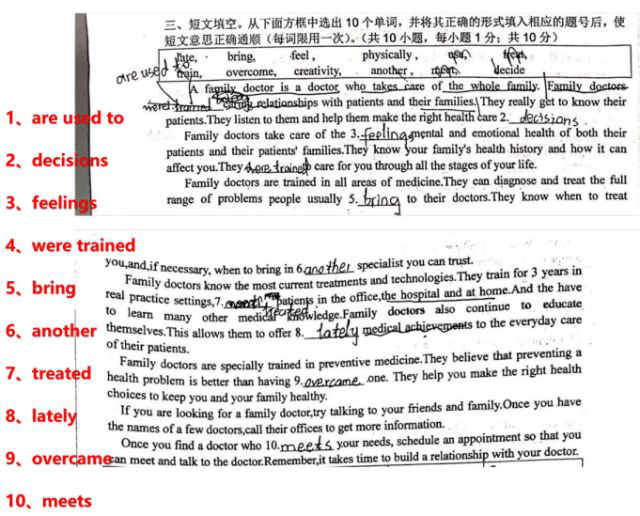 三、短文填空。从下面方框中选出 10 个单词，并将其正确的形式填入相应的题号后，使
短文意思正确通顺（每词限用一次）。（共 10 小题，每小题 1 分；共 10 分）
late, bring, feel, physically, treat,
train, overcome, creativity, another, decide
are used to
A family doctor is a doctor who takes care of the whole family. Family doctors
were trained relationships with patients and their families. They really get to know their
patients.They listen to them and help them make the right health care 2. decisions.
Family doctors take care of the 3. feeling, mental and emotional health of both their
patients and their patients' families.They know your family's health history and how it can
affect you.They were trained care for you through all the stages of your life.
Family doctors are trained in all areas of medicine.They can diagnose and treat the full
range of problems people usually 5. bring to their doctors.They know when to treat
you,and,if necessary, when to bring in 6. another specialist you can trust.
Family doctors know the most current treatments and technologies.They train for 3 years in
real practice settings,7. treated patients in the office,the hospital and at home.And the have
to learn many other medical knowledge.Family doctors also continue to educate
themselves.This allows them to offer 8. lately medical achievements to the everyday care
of their patients.
Family doctors are specially trained in preventive medicine.They believe that preventing a
health problem is better than having 9. overcame one. They help you make the right health
choices to keep you and your family healthy.
If you are looking for a family doctor,try talking to your friends and family.Once you have
the names of a few doctors,call their offices to get more information.
Once you find a doctor who 10. meets your needs, schedule an appointment so that you
can meet and talk to the doctor.Remember,it takes time to build a relationship with your doctor.
1、are used to
2、decisions
3、feelings
4、were trained
5、bring
6、another
7、treated
8、lately
9、overcame
10、meets